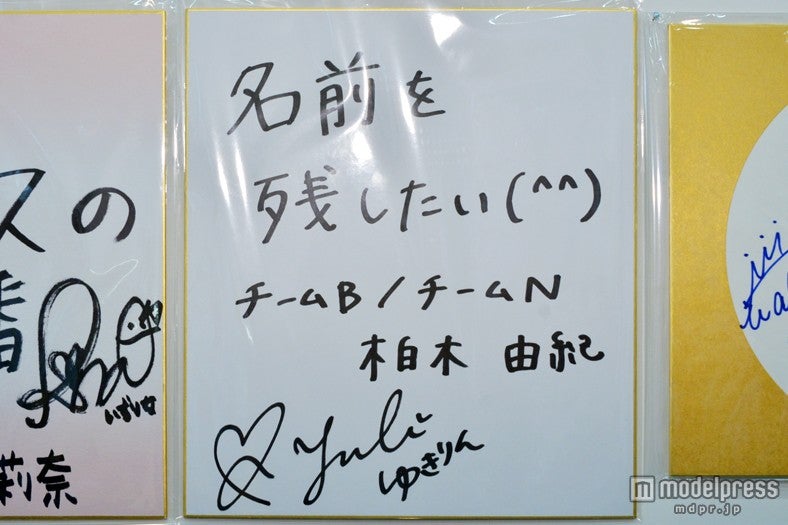 名前を
残したい(^^)
チームB/チームN
柏木 由紀
Yuki
ゆきりん
スの
番
莉奈
modelpress
mdpr.jp